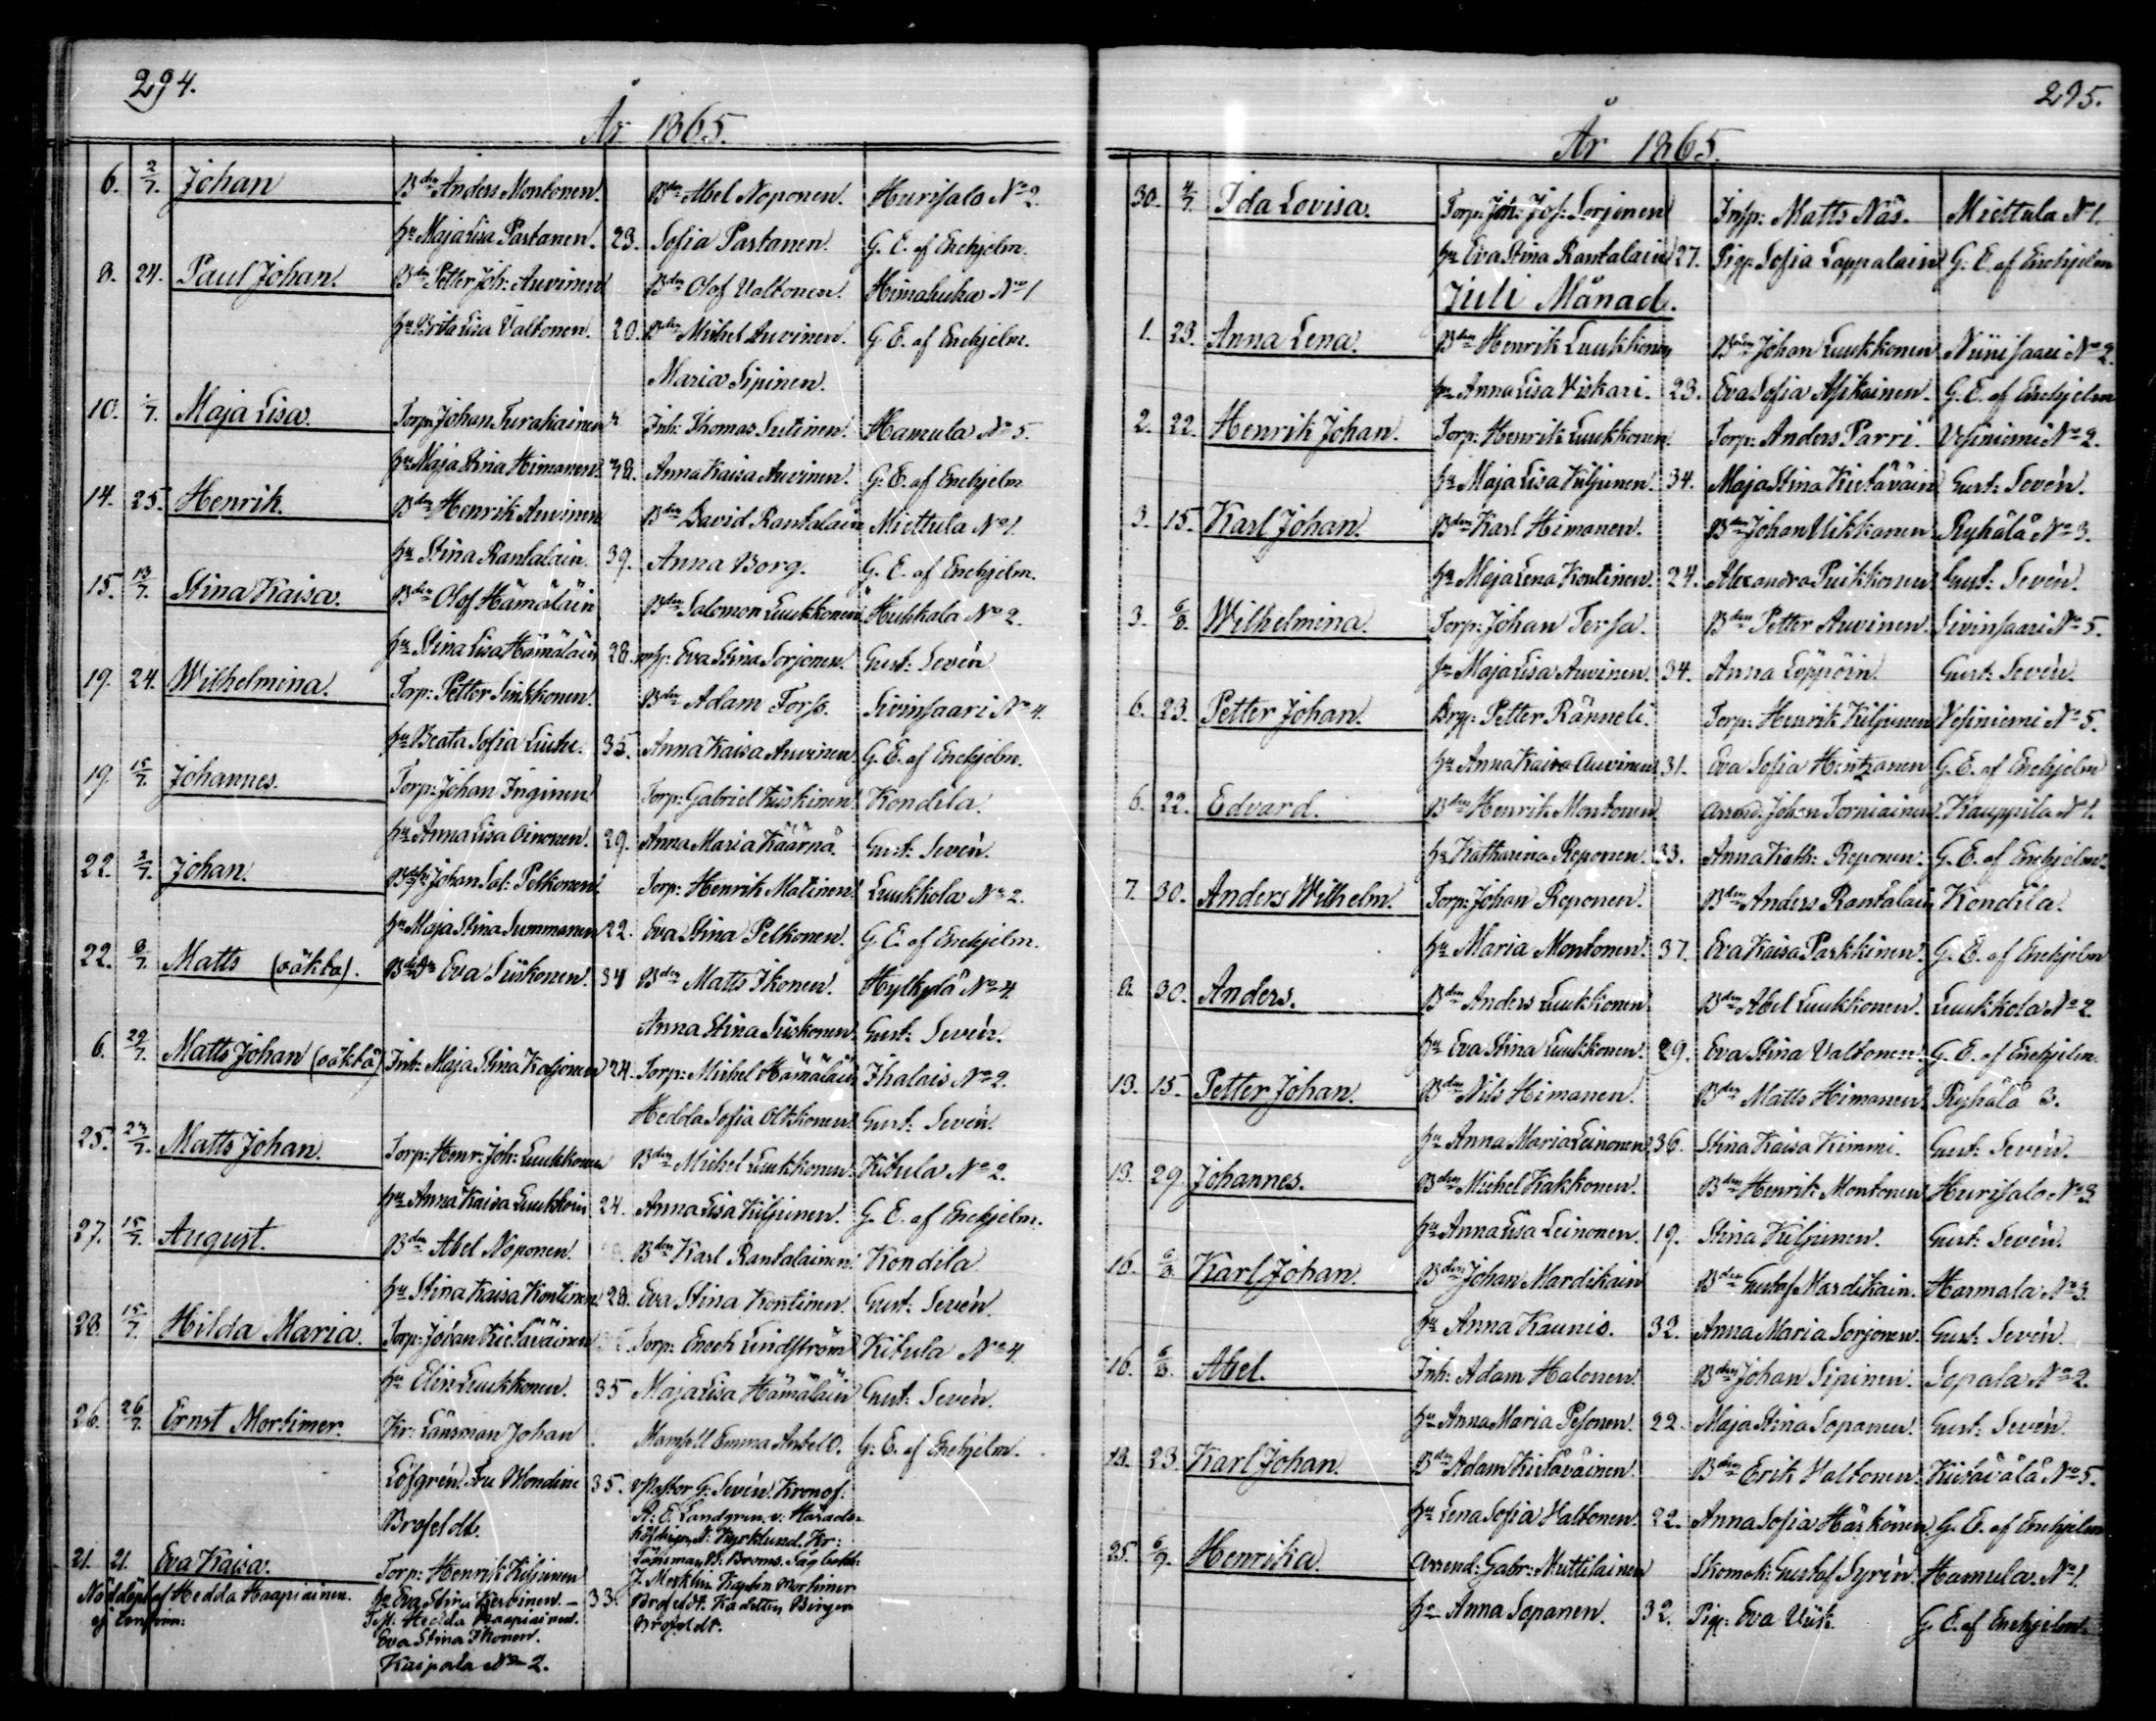 294.
År 1865.
6. 2/7. Johan Bdn Anders Montonen. Bdn Abel Noponen. Hurisalo No 2.
hu Maja Lisa Partanen. 23. Sofia Partanen. G. E. af Enehjelm.
8. 24. Paul Johan. Bdn Petter Joh: Auvinen Bdn Olof Valtonen. Himahuka No 1
hu Brita Lisa Valtonen. 20. Bdn Michel Auvinen. G. E. af Enehjelm.
Maria Sipinen.
10. Maja Lisa. Torp: Johan Turakainen Inh: Thomas Sutinen. Hamula No 5.
hu Maja Stina Himanen. 38. Anna Kaisa Auvinen. G. E. af Enehjelm
14. 25. Henrik. Bdn Henrik Auvinen Bdn David Rantalain Miettula No 1.
hu Stina Rantalain. 39. Anna Borg. G. E. af Enehjelm.
15. 13/7. Stina Kaisa. Bdn Olof Hämäläin Bdn Salomon Luukkonen Hukkala No 2.
hu Stina Lisa Hämäläin 28. Eva Stina Sorjonen. Gust: Sevén
19. 24. Wilhelmina. Torp: Petter Sinkkonen. Bdn Adam Torss. Sivinsaari No 4.
hu Beata Sofia 35. Anna Kaisa Auvinen G. E. af Enehjelm.
19. 15/7. Johannes. Torp: Johan Inginen. Torp: Gabriel Kiiskinen. Kondila.
hu Anna Lisa Oinonen. 29. Anna Maria Käärnä. Gust: Sevén.
22. 2/7. Johan. Johan Sal: Pelkonen. Torp: Henrik Matinen. Luukkola No 2.
hu Maja Stina Summanen 22. Eva Stina Pelkonen. G. E. af Enehjelm.
22. 8/7. Matts (oäkta). Eva Siiskonen. 34 Bdn Matts Ikonen. Hylkylä No 4.
Anna Stina Siiskonen. Gust: Sevén.
6. 29/7. Matts Johan (oäkta) Inh: Maja Stina Karjonen 24. Torp: Michel Hämäläin Ihalais No 2.
Hedda Sofia Oltkonen. Gust: Sevén.
25. 23/7. Matts Johan. Torp: Henr: Joh: Luukkonen Bdn Michel Luukkonen. Kitula No 2.
hu Anna Kaisa Luukkoin 24. Anna Lisa Kiljunen. G. E. af Enehjelm.
27. 15/7. August. Bdn Abel Noponen. Bdn Karl Rantalainen. Kondila
hu Stina Kaisa Kontinen 28. Eva Stina Kontinen. Gust: Sevén.
28. 15/7. Hilda Maria. Torp: Johan Kietäväinen Torp: Enoch Lindström Kitula No 4.
hu Elin Luukkonen. 35 Maja Lisa Hämäläin Gust: Sevén.
26. 26/7. Ernst Mortimer. Kr: Länsman Johan Mamsell Emma Antell O. G. E. af Enehjelm.
Löfgrén. Fru Blondine 35. Pastor G: Sevén. Kronof:
Brofeldt. A: E. Landgren. v: Härads
höfdingen A: Kyrklund. Kr:
Länsman
21. 21. Eva Kaisa. Torp: Henrik Kiljunen J. Kapten Mortimer
Nöddöpt af Hedda Haapiainen. hu Eva Stina Kervinen. 33. Brofeldt. Kadetten Birger
Test: Hedda Haapiainen. Brofeldt.
Eva Stina Ikonen.
Kuipala No 2.
295.
År 1865.
30. 4/7. Ida Lovisa. Torp: Joh: Jos: Sorjonen Insp: Matts Näs. Miettula No 1.
hu Eva Stina Rantalain 27. Pig: Sofia Lappalain G. E. af Enehjelm
Juli Månad.
1. 23. Anna Lena. Bdn Henrik Luukkonen Bdn Johan Luukkonen Niinisaari No 2.
hu Anna Lisa Viskari. 23. Eva Sofia Asikainen. G. E. af Enehjelm
2. 22. Henrik Johan. Torp: Henrik Luukkonen. Torp: Anders Parri. Vesiniemi No 2.
hu Maja Lisa Kiljunen. 34. Maja Stina Kietäväin Gust: Sevén.
3. 15. Karl Johan. Bdn Karl Himanen. Bdn Johan Ukkonen Ryhälä No 3.
hu Maja Lena Kontinen. 24. Alexandra Puikkonen Gust: Sevén.
3. 6/8. Wilhelmina. Torp: Johan Tersa. Bdn Petter Auvinen. Sivinsaari No 5.
hu Maja Lisa Auvinen. 34. Anna Löppöin. Gust: Sevén.
6. 23. Petter Johan. Petter Ränneli. Torp: Henrik Kiljunen Vesiniemi No 5.
hu Anna Kaisa Auvinen 31. Eva Sofia Hintzanen G. E. af Enehjelm
6. 22. Edvard. Bdn Henrik Montonen Arrend: Johan Torniainen. Kauppila No 1.
hu Katharina Reponen. 33. Anna Kath: Reponen. G. E. af Enehjelm.
7. 30. Anders Wilhelm. Torp: Johan Reponen. Bdn Anders Rantalain Kondila.
hu Maria Montonen. 37. Eva Kaisa Parkkinen. G. E. af Enehjelm
8. 30. Anders. Bdn Anders Luukkonen Bdn Abel Luukkonen. Luukkola No 2
hu Eva Stina Luukkonen. 29. Eva Stina Valtonen. G. E. af Enehjelm.
13. 15. Petter Johan. Bdn Nils Himanen. Bdn Matts Himanen. Ryhälä 3.
hu Anna Maria Leinonen 36. Stina Kaisa Kimmi. Gust: Sevén.
13. 29. Johannes. Bdn Michel Kakkonen. Bdn Henrik Montonen Hurisalo No 3
hu Anna Lisa Leinonen. 19. Stina Kiljunen. Gust: Sevén.
16. 6/8. Karl Johan. Bdn Johan Mardikain Bdn Gustaf Mardikain. Harmala No 3.
hu Anna Kaunis. 32. Anna Maria Sorjonen. Gust: Sevén.
16. 6/8. Abel. Inh: Adam Halonen. Bdn Johan Sipinen. Sopala No 2.
hu Anna Maria Pesonen. 22. Maja Stina Sopanen. Gust: Sevén.
18. 23. Karl Johan. Bdn Adam Kietäväinen. Bdn Erik Valtonen. Kietävälä No 5.
hu Lena Sofia Valtonen. 22. Anna Sofia Härkönen G. E. af Enehjelm
25. 6/9. Henrika. Arrend: Gabr: Muttilainen Skomak: Gustaf Syrén. Hamula No 1.
hu Anna Sopanen. 32. Pig: Eva Viik. G. E. af Enehjelm.